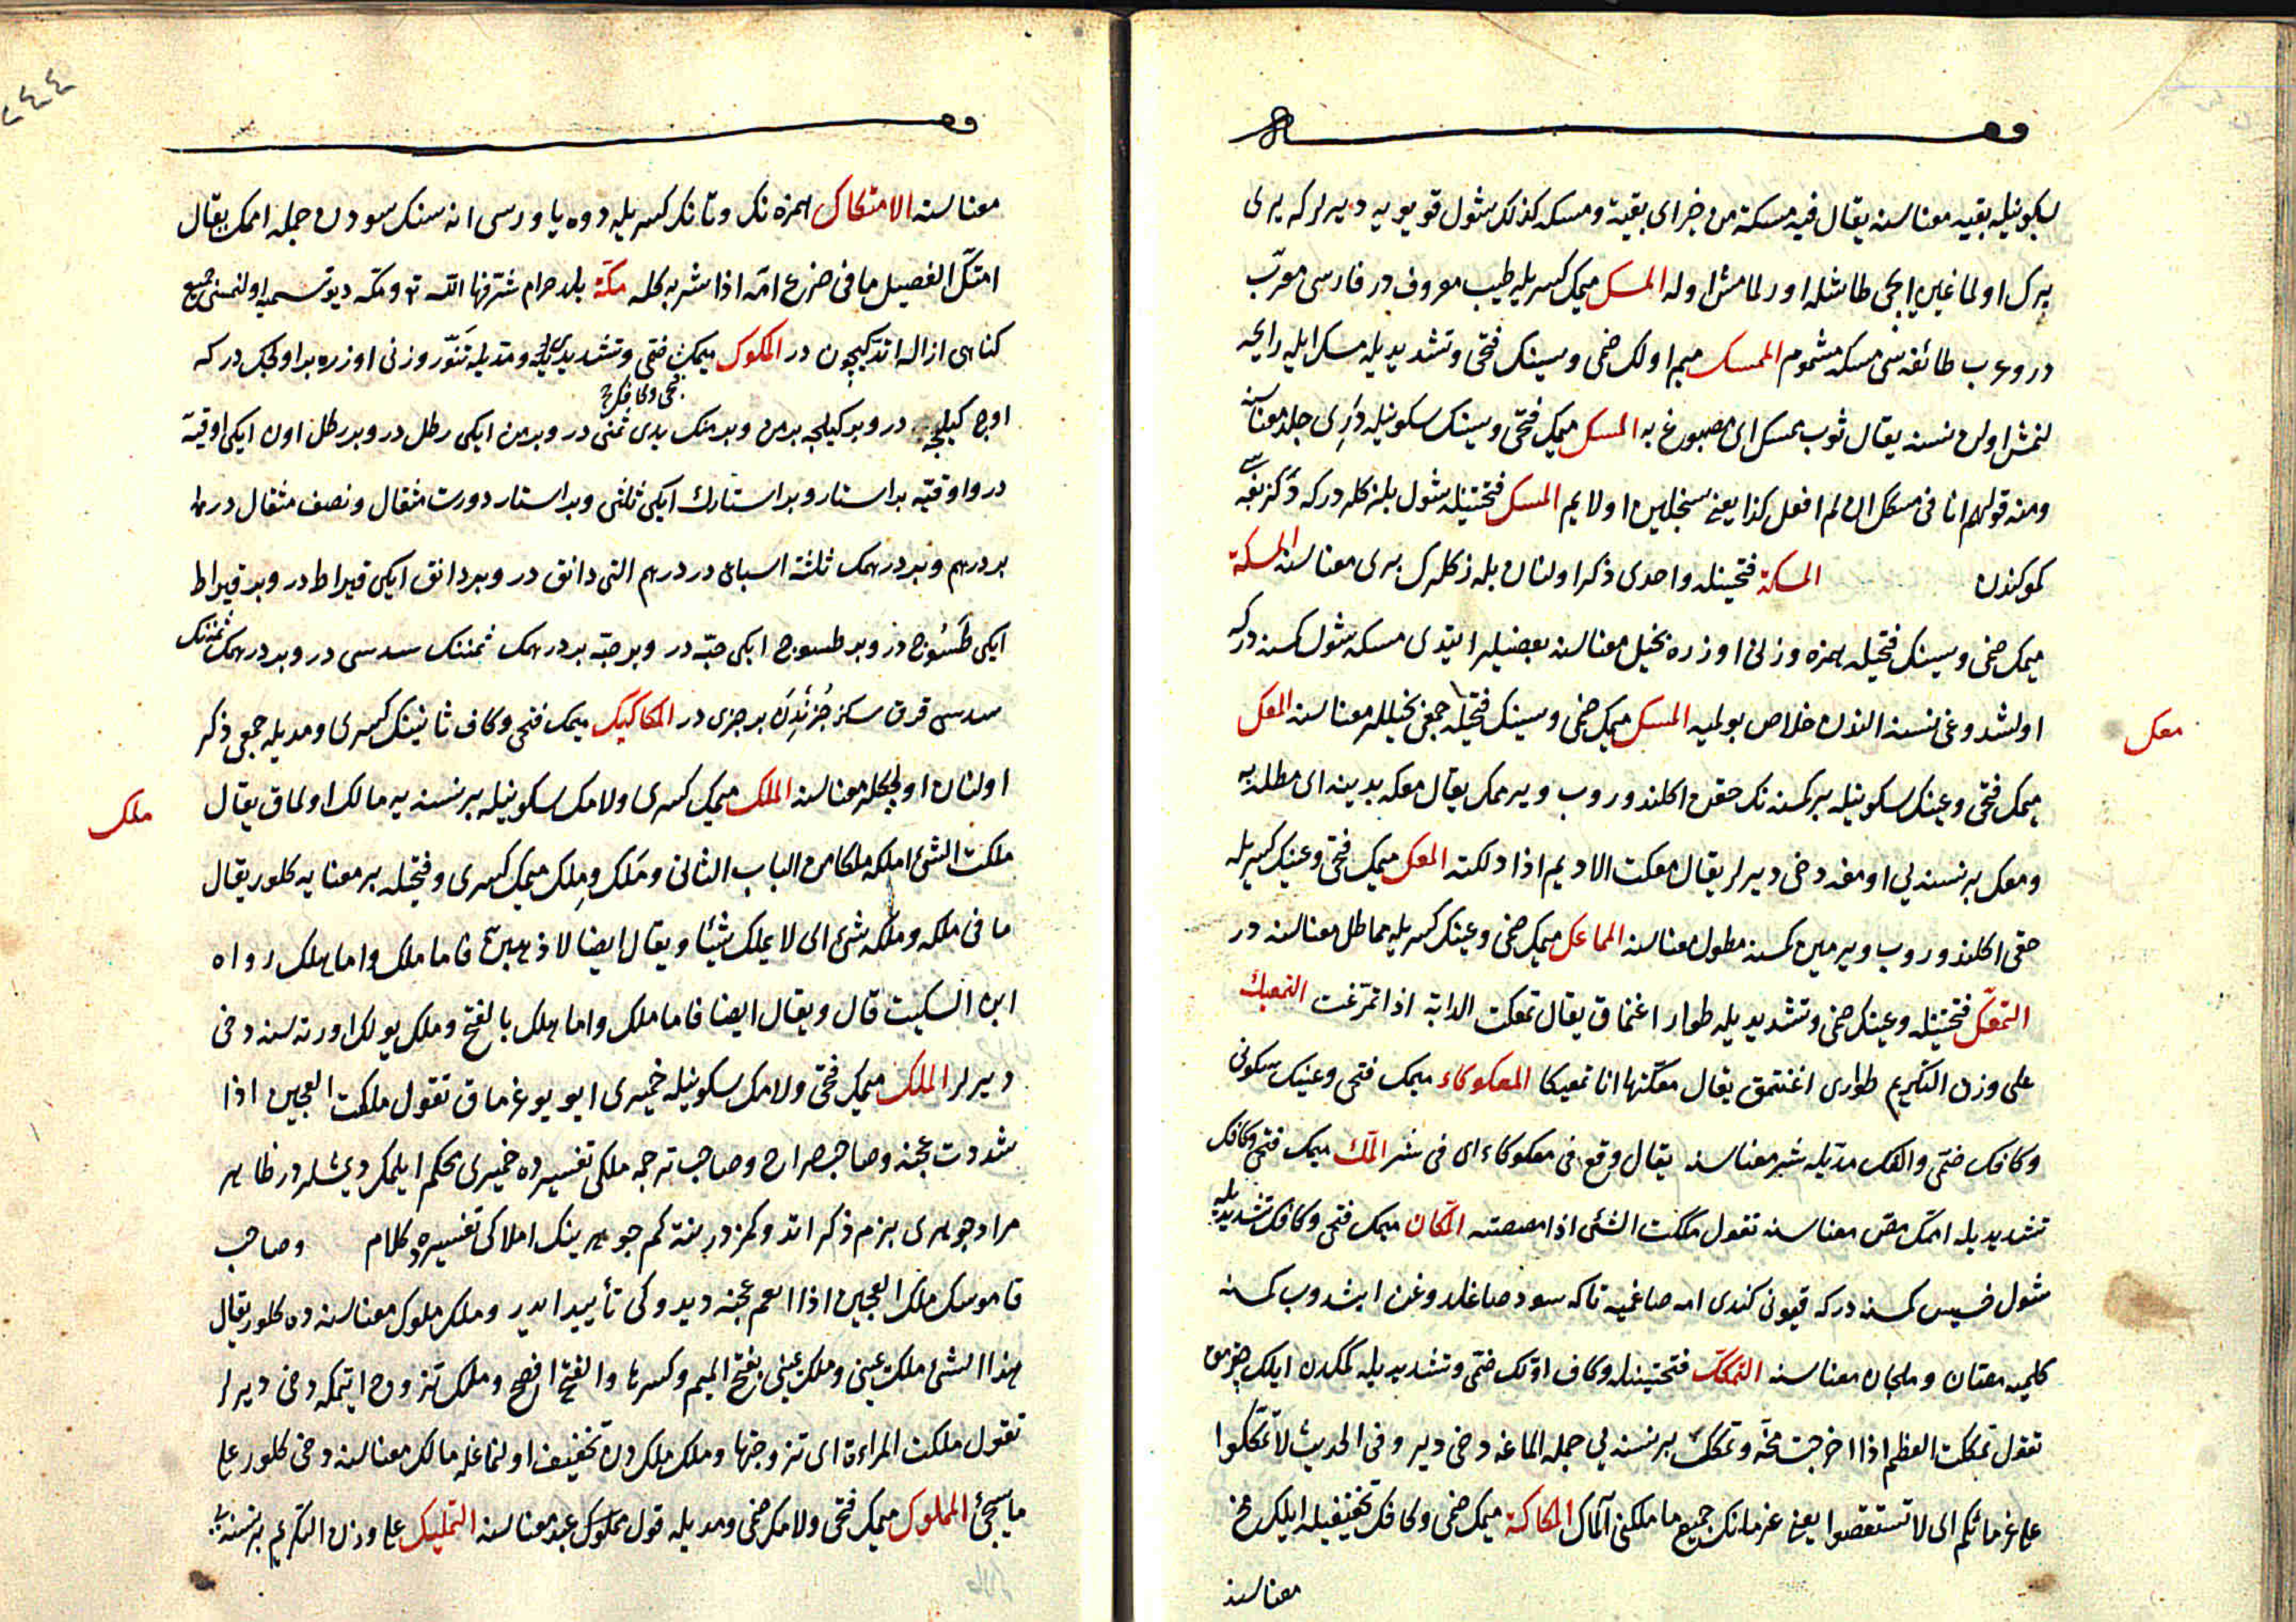 سكونيله بقيه معناسنه يقال فيه مسكة من خير اى بقية ومسكه كذلك شول قويويه ديرلر كه يرى
برك اولماغين ايچى طاشله اورلمامش اوله المسك ميمك كسريله طيب معروف در فارسى معرّب
در وعرب طائفه سى مسكه مشموم الممسك ميم اولك ضمى وسينك فتحى وتشديديله مسك ايله رايحه
لنمش اولان نسنه يقال ثوب ممسك اى مصبوغ به المسك ميمك فتحى وسينك سكونيله درى جلد معناسنه
ومنه قولهم انا فى مسكك ان لم افعل كذا يعنى المسك فتحتيله شول بلزكلر در كه
كموكدن المسكة فتحتينله واحدى ذكر اولنان بلزكلرك برى معناسنه المسكة
ميمك ضمى وسينك فتحيله همزه وزنى اوزره بخيل معناسنه بعضيلر ايتدى مسكه شول كمسنه در كه
اولشدوغى نسنه اندن خلاص بولميه المسك ميمك ضمى وسينك فتحيله جمعى بخيللر معناسنه المعك
معك
ميمك فتحى وعينك سكونيله بر كمسنه نك حقن اكلندوروب ويرممك يقال معكه بدينه اى مطله به
ومعك بر نسنه يي اومغه دخى ديرلر يقال معكت الاديم اذا دلكته المعك ميمك فتحى وعينك كسريله
حقى اكلندوروب ويرمين كمسنه مطول معناسنه المماعك ميمك ضمى وعينك كسريله مماطل معناسنه در
التمعّك فتحتينله وعينك ضمى وتشديديله طوار اغنماق يقال تمعكت الدابة اذا تمرّغت التمعيك
على وزن التكريم طوارى اغنتمق يقال معّكتها انا تمعيكا المعكوكاء ميمك فتحى وعينك سكونى
وكافك ضمّى والفك مدّيله شر معناسنه يقال وقع فى معكوكاء اى فى شر المكّ ميمك فتحى وكافك
تشديديله امك مص معناسنه تقول مككت الشئ اذا مصصته المكّان ميمك فتحى وكافك تشديديله
شول خسيس كمسنه در كه قيونى كندى امه صاغميه تاكه سود صاغلدوغن ايشدوب كمسنه
كلميه مصّان وملجان معناسنه التمكّك فتحتينله وكاف اوّلك ضمّى وتشديديله كمكدن ايلك چقرمق
تقول تمككت العظم اذا اخرجت مخّه وتمكك بر نسنه يي جمله الماغه دخى دير وفى الحديث لا تمكّكوا
على غرمائكم اى لا تستقصوا يعنى غرمانك جميع ما ملكنى المك المكاكة ميمك ضمى وكافك تخفيفيله ايلك مخ
معناسنه
معناسنه الامتكاك همزه نك وتانك كسريله دوه ياوروسى اناسنك سودن جمله اممك يقال
امتكّ الفصيل ما فى ضرع امّه اذا شربه كله مكّة بلد حرام شرّفها الله تع ومكه ديو تسميه اولنمسى جميع
كناهى ازاله اتدكيچون در المكوك ميمك فتحى وتشديديله ومديله تنّور وزنى اوزره بر اولچكدر كه
فتحى وكافك
اوچ كيلجه در وبر كيلجه بر من وبر منك يدى ثمنى در وبر من ايكى رطل در وبر رطل اون ايكى اوقيّه
در واوقيّه بر استار وبر استارك ايكى ثلثى وبر استار دورت مثقال ونصف مثقال در مثقال
بر درهم وبر درهمك ثلثة اسباعى در درهم التى دانق در وبر دانق ايكى قيراط در وبر قيراط
ايكى طسوج در وبر طسوج ايكى حبّه در وبر حبّه بر درهمك ثمننك سدسى در وبر درهمك ثمننك
سدسى قرق سكز جزئدن بر جزى در المكاكيك ميمك فتحى وكاف ثانينك كسرى ومديله جمعى ذكر
اولنان اولچكلر معناسنه الملك ميمك كسرى ولامك سكونيله بر نسنه يه مالك اولماق يقال
ملك
ملكت الشئ املكه ملكا من الباب الثانى وملك وملك ميمك كسرى وفتحيله بر معنايه كلور يقال
ما فى ملكه وملكه شئ اى لا يملك شيئا ويقال ايضا لاذهبن فاما ملك واما هلك رواه
ابن السكيت قال ويقال ايضا فاما ملك واما هلك بالفتح وملك يولك اورته سنه دخى
ديرلر الملك ميمك فتحى ولامك سكونيله خميرى ايو يوغرماق تقول ملكت العجين اذا
شددت عجنه وصاحب صراح وصاحب ترجمه ملكى تفسيرده خميرى محكم ايلمك ديمشلر در ظاهر
مراد جوهرى بزم ذكر اتدوكمزدر نته كم جوهرينك املاكى تفسيرده كلام وصاحب
قاموسك ملك العجين اذا انعم عجنه ديدوكى تأييد ايدر وملك مملوك معناسنه ده كلور يقال
هذا الشئ ملك عينى وملك عينى بفتح الميم وكسرها والفتح افصح وملك تزوج ايتمكه دخى ديرلر
تقول ملكت المراءة اى تزوجتها وملك ملكدن تخفيف اولنماغله مالك معناسنه دخى كلور على
ما سيجئ المملوك ميمك فتحى ولامك ضمى ومديله قول مملوك عبد معناسنه التمليك على وزن التكريم بر نسنه يي
٢٤٤